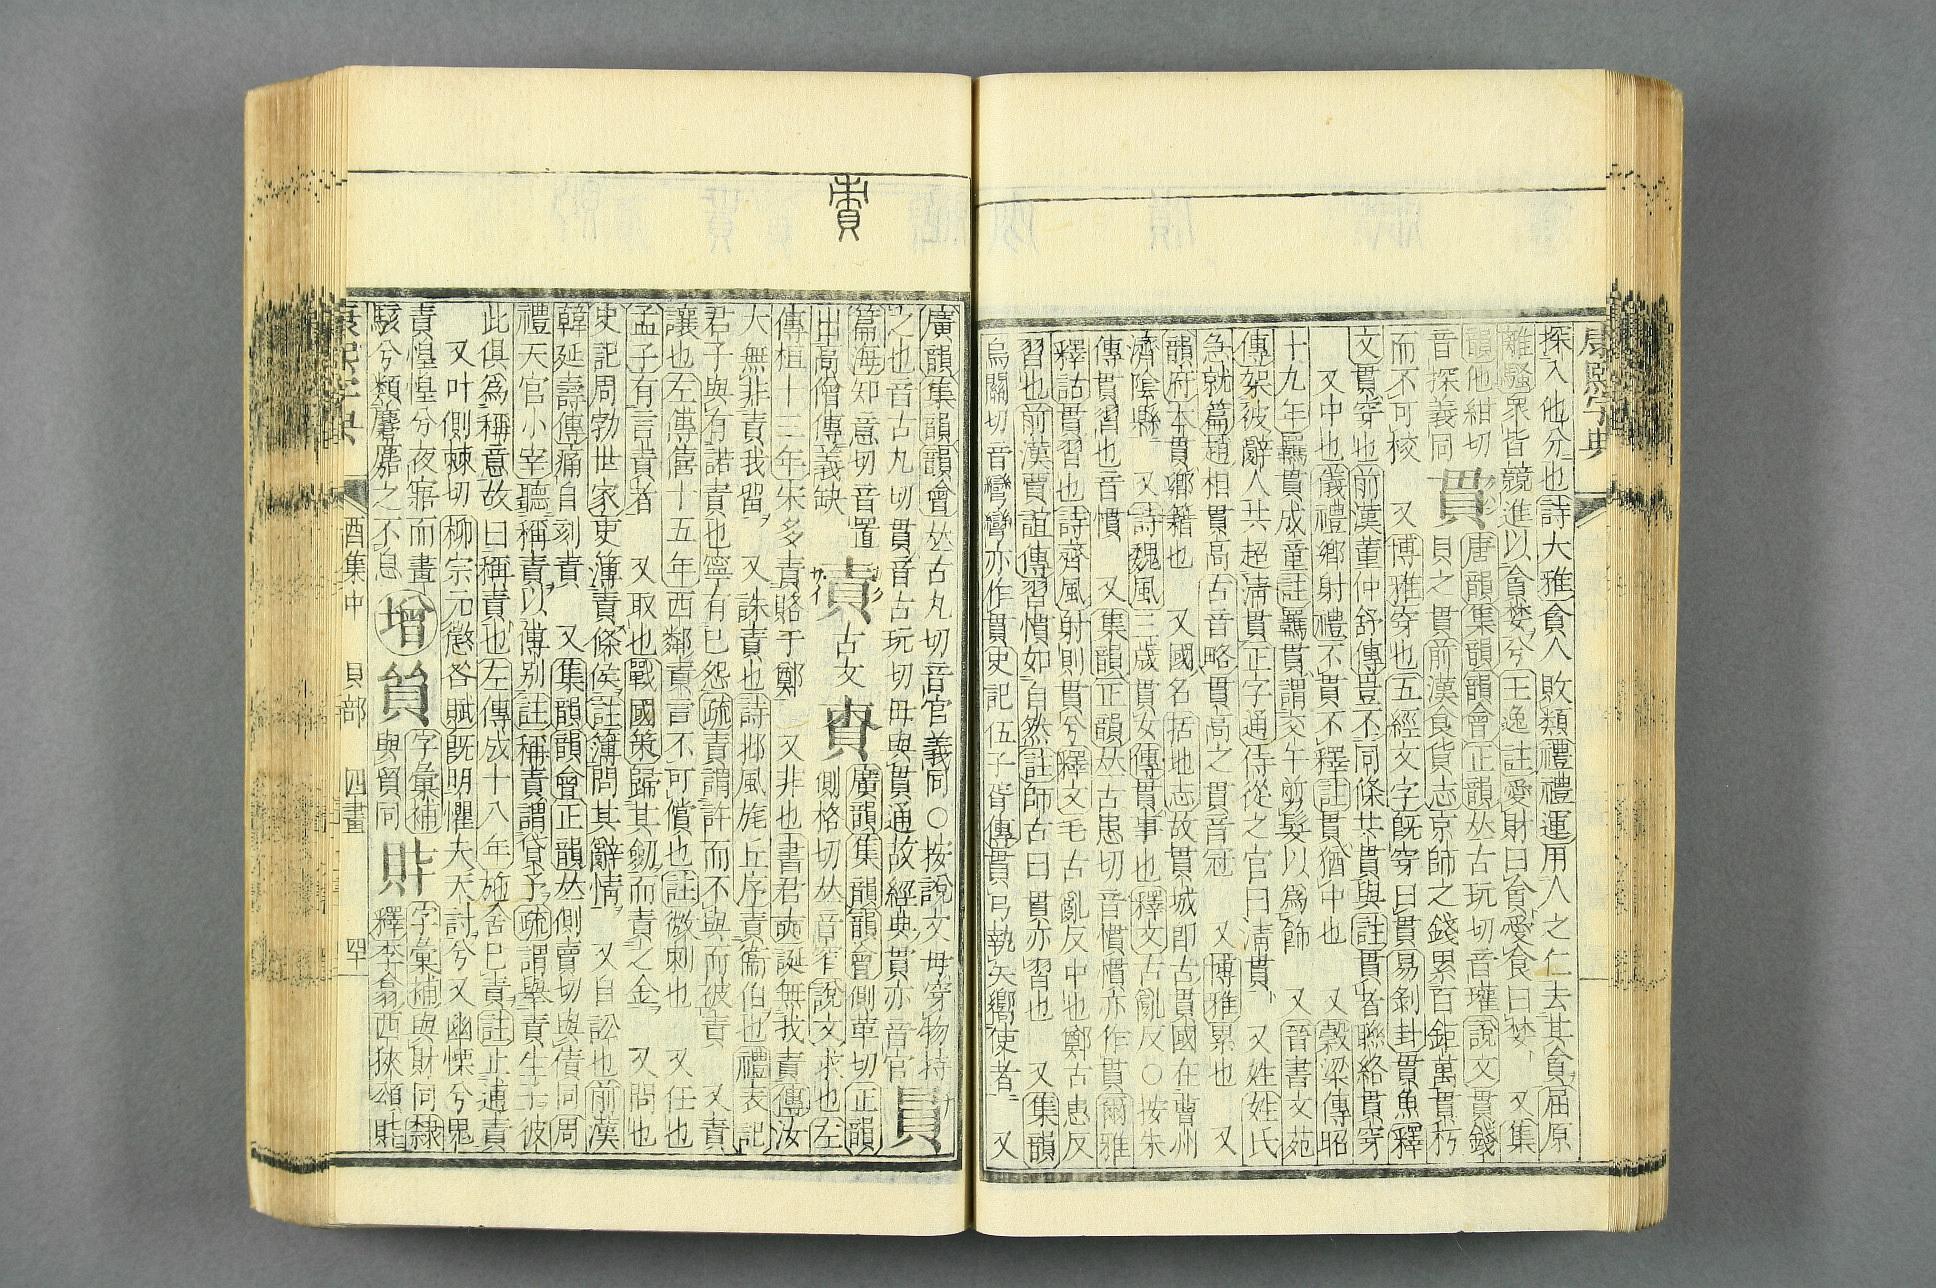 康熙字典
探入他分也詩大雅貪人敗類禮禮運用人之仁去其貪屈原
離騷衆皆競進以貪婪兮王逸註愛財曰貪愛食曰婪 又集
韻他紺切 貫 唐韻集韻韻會正韻𠀤古玩切音瓘說文貫錢
音探義同 貝之貫前漢食貨志京師之錢累百鉅萬貫朽
而不可校 又博雅穿也五經文字旣穿曰貫易剝封貫魚釋
文貫穿也前漢董仲舒傳豈不同條共貫與註貫者聯絡貫穿
又中也儀禮鄉射禮不貫不釋註貫猶中也 又穀梁傳昭
十九年羈貫成童註羈貫謂交午剪髮以爲飾 又晉書文苑
傳架彼辭人共超淸貫正字通侍從之官曰淸貫 又姓姓氏
急就篇趙相貫高古音略貫高之貫音冠 又博雅累也 又
韻府本貫鄉籍也 又國名括地志故貫城卽古貫國在曹州
濟陰縣 又詩魏風三歲貫女傳貫事也釋文古亂反○按朱
傳貫習也音慣 又集韻正韻𠀤古患切音慣慣亦作貫爾雅
釋詁貫習也詩齊風射則貫兮釋文毛古亂反中也鄭古患反
習也前漢賈誼傳習慣如自然註師古曰貫亦習也 又集韻
烏關切音彎彎亦作貫史記伍子胥傳貫弓執矢嚮使者 又
責
廣韻集韻韻會𠀤古丸切音官義同○按說文毌穿物持
之也音古丸切貫音古玩切毌與貫通故經典貫亦音官
篇海知意切音置 責 古文 廣韻集韻韻會側革切正韻
出高僧傳義缺 側格切𠀤音窄說文求也左
傳桓十三年宋多責賂于鄭 又非也書君奭誕無我責傳汝
大無非責我留 又誅責也詩邶風旄丘序責衞伯也禮表記
君子與有諾責也寧有已怨疏責謂許而不與而被責 又責
讓也左傳僖十五年西鄰責言不可償也註微刺也 又任也
孟子有言責者 又取也戰國策歸其劒而責之金 又問也
史記周勃世家吏簿責條侯註簿問其辭情 又自訟也前漢
韓延壽傳痛自刻責 又集韻韻會正韻𠀤側賣切與債同周
禮天官小宰聽稱責以傅别註稱責謂貸予疏謂舉責生子彼
此俱爲稱意故曰稱責也左傳成十八年施舍已責註止逋責
又叶側棘切柳宗元懲咎賦旣明懼夫天討兮又幽慄兮鬼
責惶惶兮夜寤而晝 增 貿 字彙補 貯 字彙補與財同隸
駭兮類麏麚之不息 與貿同 釋李翕西狹頌
康熙字典 酉集中 貝部 四畫 四